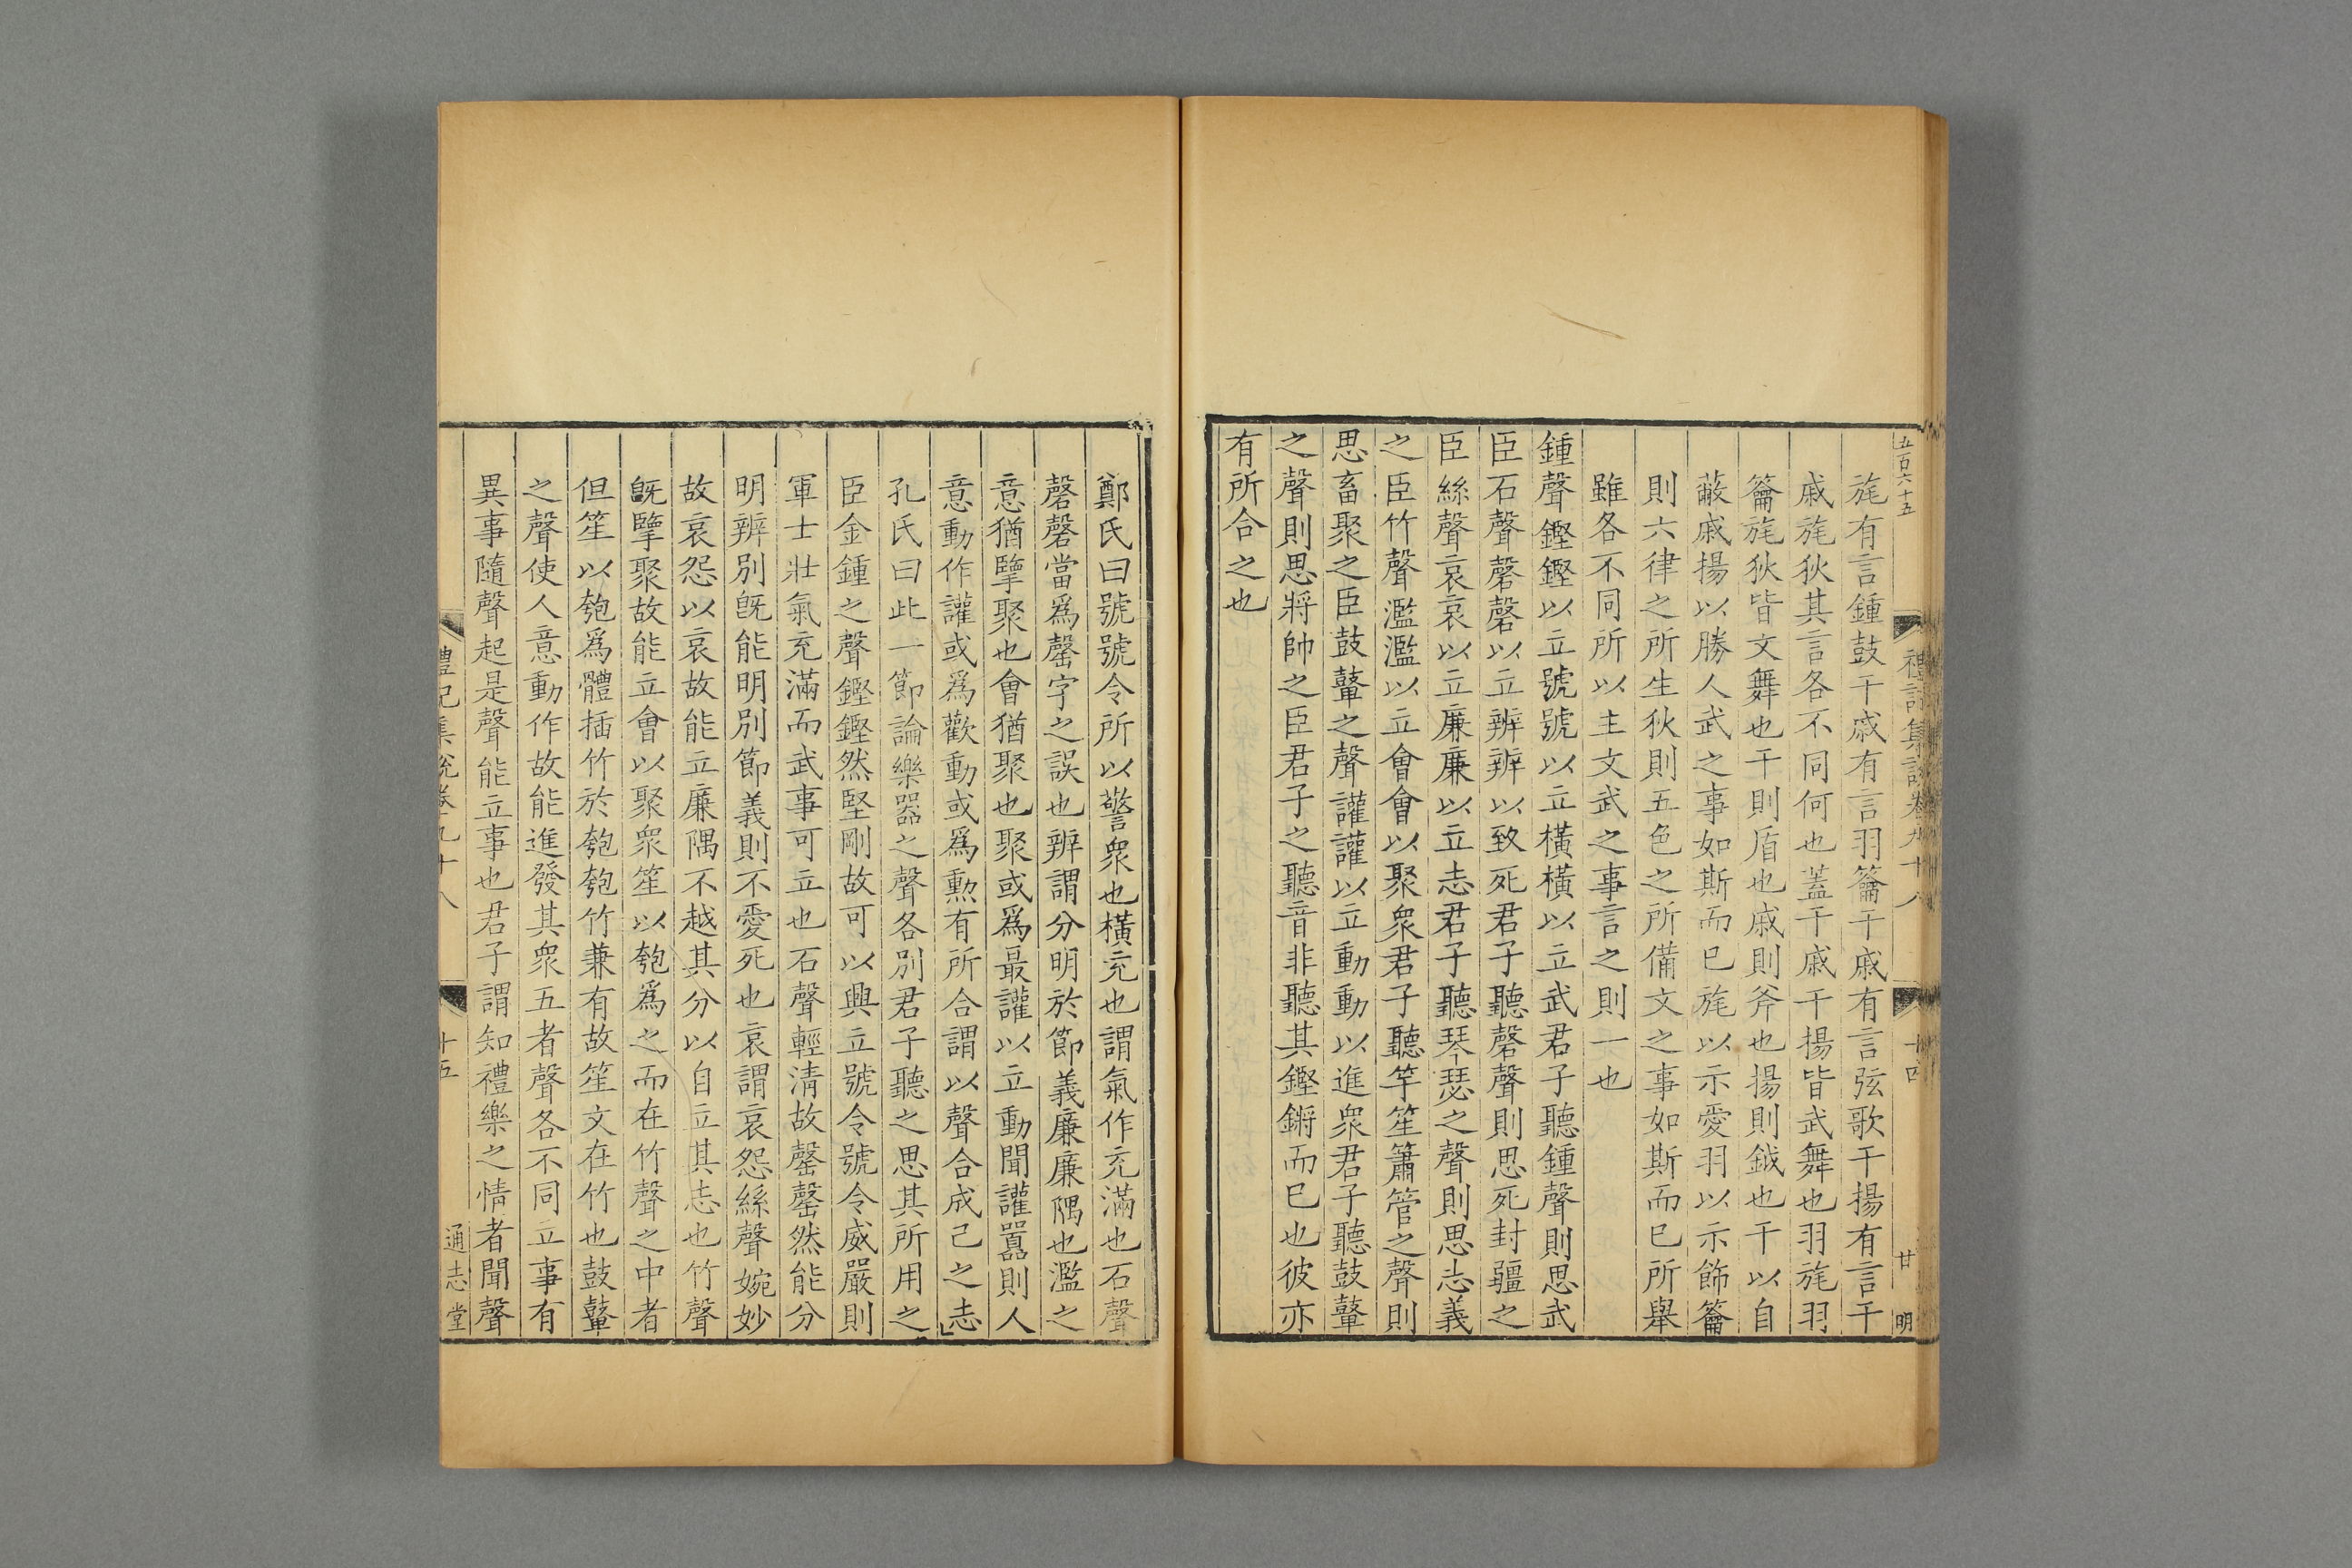 五百六十五
禮記集說卷九十八
十四
甘 明
旄有言鍾鼓干戚有言羽籥干戚有言弦歌干揚有言干
戚旄狄其言各不同何也蓋干戚干揚皆武舞也羽旄羽
籥旄狄皆文舞也干則盾也戚則斧也揚則鉞也干以自
蔽戚揚以勝人武之事如斯而已旄以示愛羽以示飾籥
則六律之所生狄則五色之所備文之事如斯而已所舉
雖各不同所以主文武之事言之則一也
鍾聲鏗鏗以立號號以立橫橫以立武君子聽鍾聲則思武
臣石聲磬磬以立辨辨以致死君子聽磬聲則思死封疆之
臣絲聲哀哀以立廉廉以立志君子聽琴瑟之聲則思志義
之臣竹聲濫濫以立會會以聚衆君子聽竽笙簫管之聲則
思畜聚之臣鼓鼙之聲讙讙以立動動以進衆君子聽鼓鼙
之聲則思將帥之臣君子之聽音非聽其鏗鏘而已也彼亦
有所合之也
鄭氏曰號號令所以警衆也橫充也謂氣作充滿也石聲
磬磬當爲罄字之誤也辨謂分明於節義廉廉隅也濫之
意猶擥聚也會猶聚也聚或爲最讙以立動聞讙嚻則人
意動作讙或爲歡動或爲勲有所合謂以聲合成己之志
孔氏曰此一節論樂器之聲各別君子聽之思其所用之
臣金鍾之聲鏗鏗然堅剛故可以興立號令號令威嚴則
軍士壯氣充滿而武事可立也石聲輕清故罄罄然能分
明辨別旣能明別節義則不愛死也哀謂哀怨絲聲婉妙
故哀怨以哀故能立廉隅不越其分以自立其志也竹聲
旣擥聚故能立會以聚衆笙以匏爲之而在竹聲之中者
但笙以匏爲體插竹於匏匏竹兼有故笙文在竹也鼓鼙
之聲使人意動作故能進發其衆五者聲各不同立事有
異事隨聲起是聲能立事也君子謂知禮樂之情者聞聲
禮記集說卷九十八
十五
通志堂